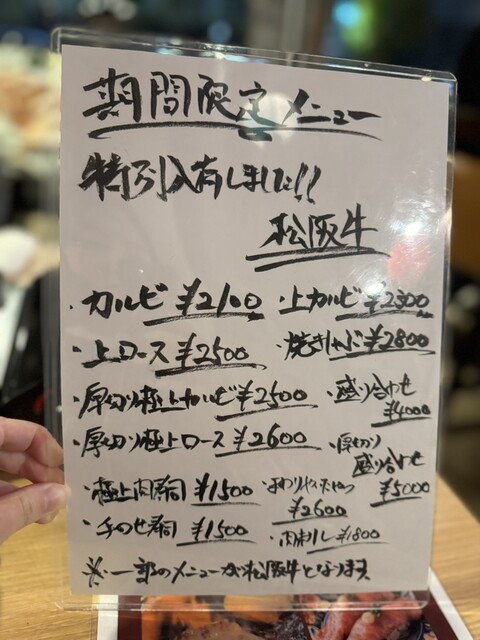 期間限定メニュー
特別入荷しました!!
松阪牛
・カルビ ¥2100 ・上カルビ ¥2300
・上ロース ¥2500 ・焼きしゃぶ ¥2800
・厚切り極上カルビ ¥2500 ・盛り合わせ ¥4000
・厚切り極上ロース ¥2600 ・厚切り盛り合わせ ¥5000
・極上肉寿司 ¥1500 ¥2600
・手のせ寿司 ¥1500 ・肉刺し ¥1800
※・一部のメニューが松阪牛となります